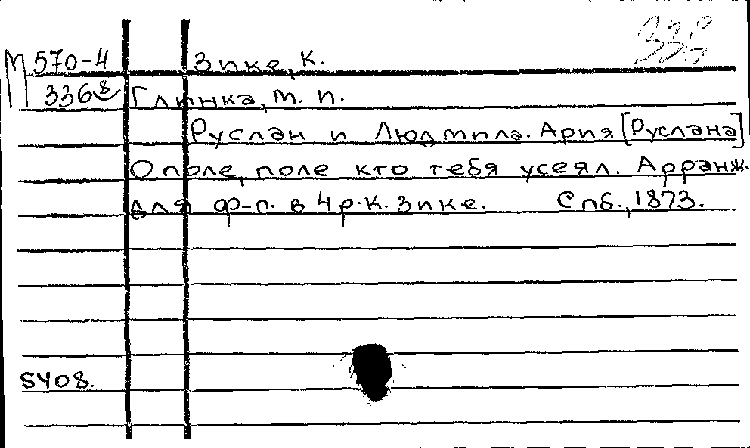 М 570-4 Зике, К.
3368 Глинка, М. И.
Руслан и Людмила. Ария [Руслана]
О поле, поле кто тебя усеял. Арранж.
для ф-п. в 4 р. К. Зике. Спб., 1873.
5408.